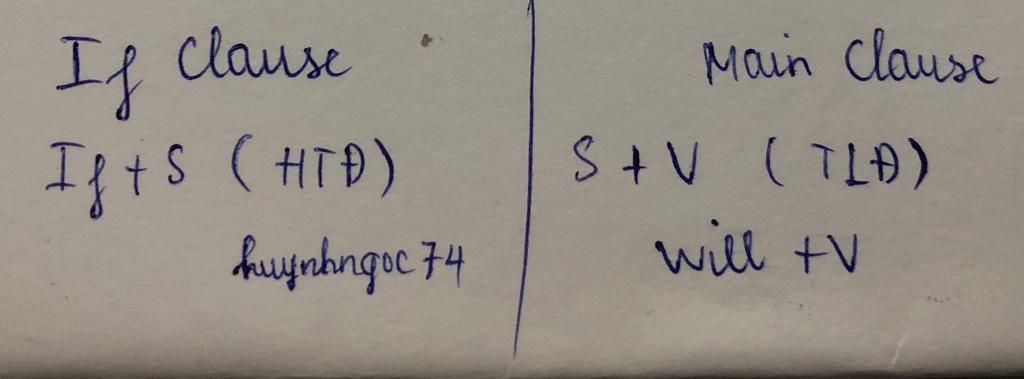 If Clause
If + S (HTĐ)
huynhngoc74
Main Clause
S + V (TLĐ)
will + V